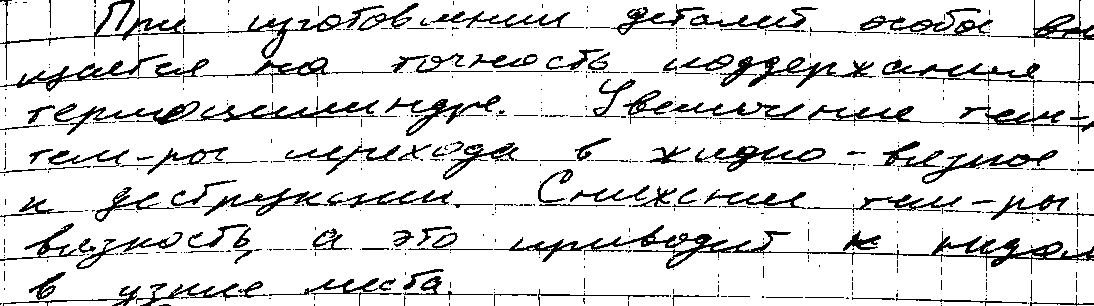 При изготовлении деталей особое вн
щается на точность поддержания
термоцилиндре. Увеличение тем-
тем-ры перехода в жидко-вязкое
к деструкции. Снижение тем-ры
вязкость, а это приводит к недол
в узкие места.